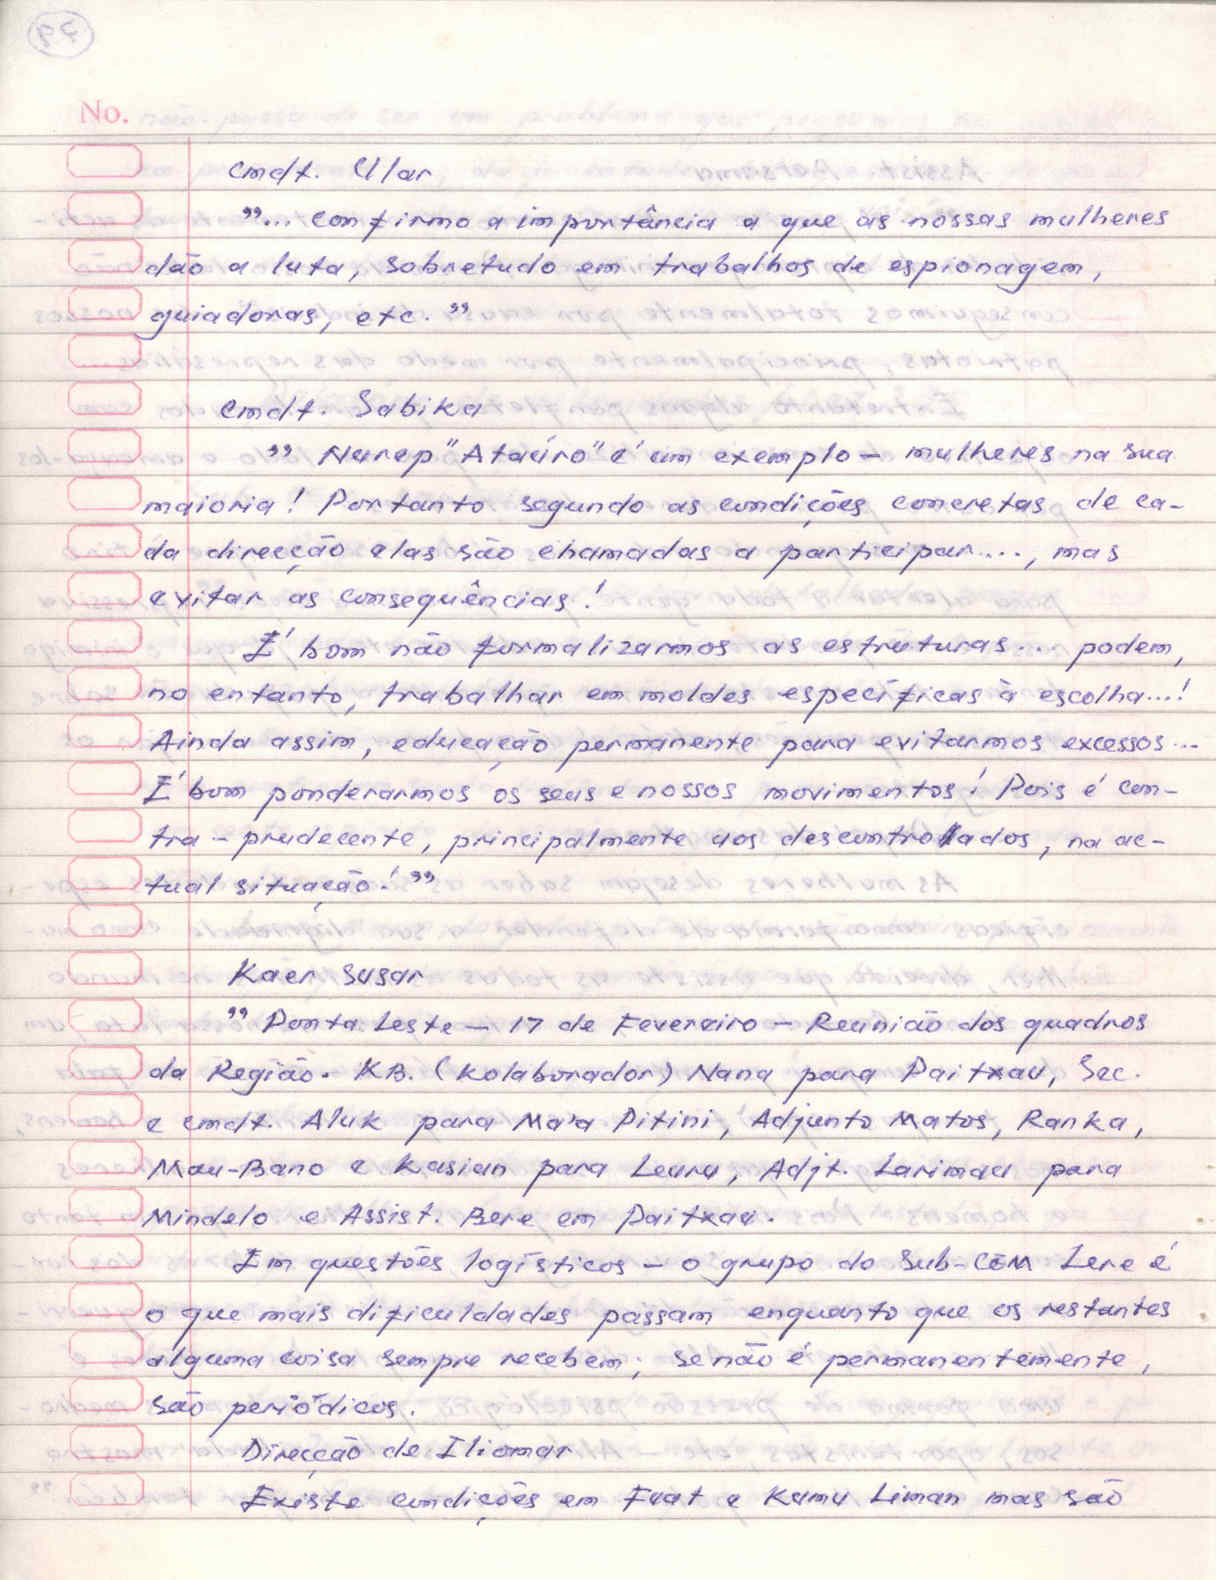 No.
Cmdt. Ular
"... confirmo a importância a que as nossas mulheres
dão a luta, sobretudo em trabalhos de espionagem,
guiadoras, etc. "
Cmdt. Sabika
" Nurep "Ataúro" é um exemplo – mulheres na sua
maioria! Portanto segundo as condições concretas de ca-
da direcção elas são chamadas a participar...., mas
evitar as consequências!
É bom não formalizarmos as estruturas... podem,
no entanto, trabalhar em moldes específicas à escolha...!
Ainda assim, educação permanente para evitarmos excessos...
É bom ponderarmos os seus e nossos movimentos! Pois é con-
tra-prudecente, principalmente aos descontrolados, na ac-
tual situação! "
Kaer Susar
" Ponta Leste – 17 de Fevereiro – Reunião dos quadros
da Região. KB. (Kolaborador) Nana para Paitxau, Sec.
e cmdt. Aluk para Ma'a Pitini, Adjunto Matos, Ranka,
Mau-Bano e Kasian para Leuru, Adjt. Larimau para
Mindelo e Assist. Bere em Paitxau.
Em questões logísticos – o grupo do Sub-CEM Lere é
o que mais dificuldades passam enquanto que os restantes
alguma coisa sempre recebem; se não é permanentemente,
são periódicos.
Direcção de Iliomar
Existe condições em Fuat e Kumu Liman mas são